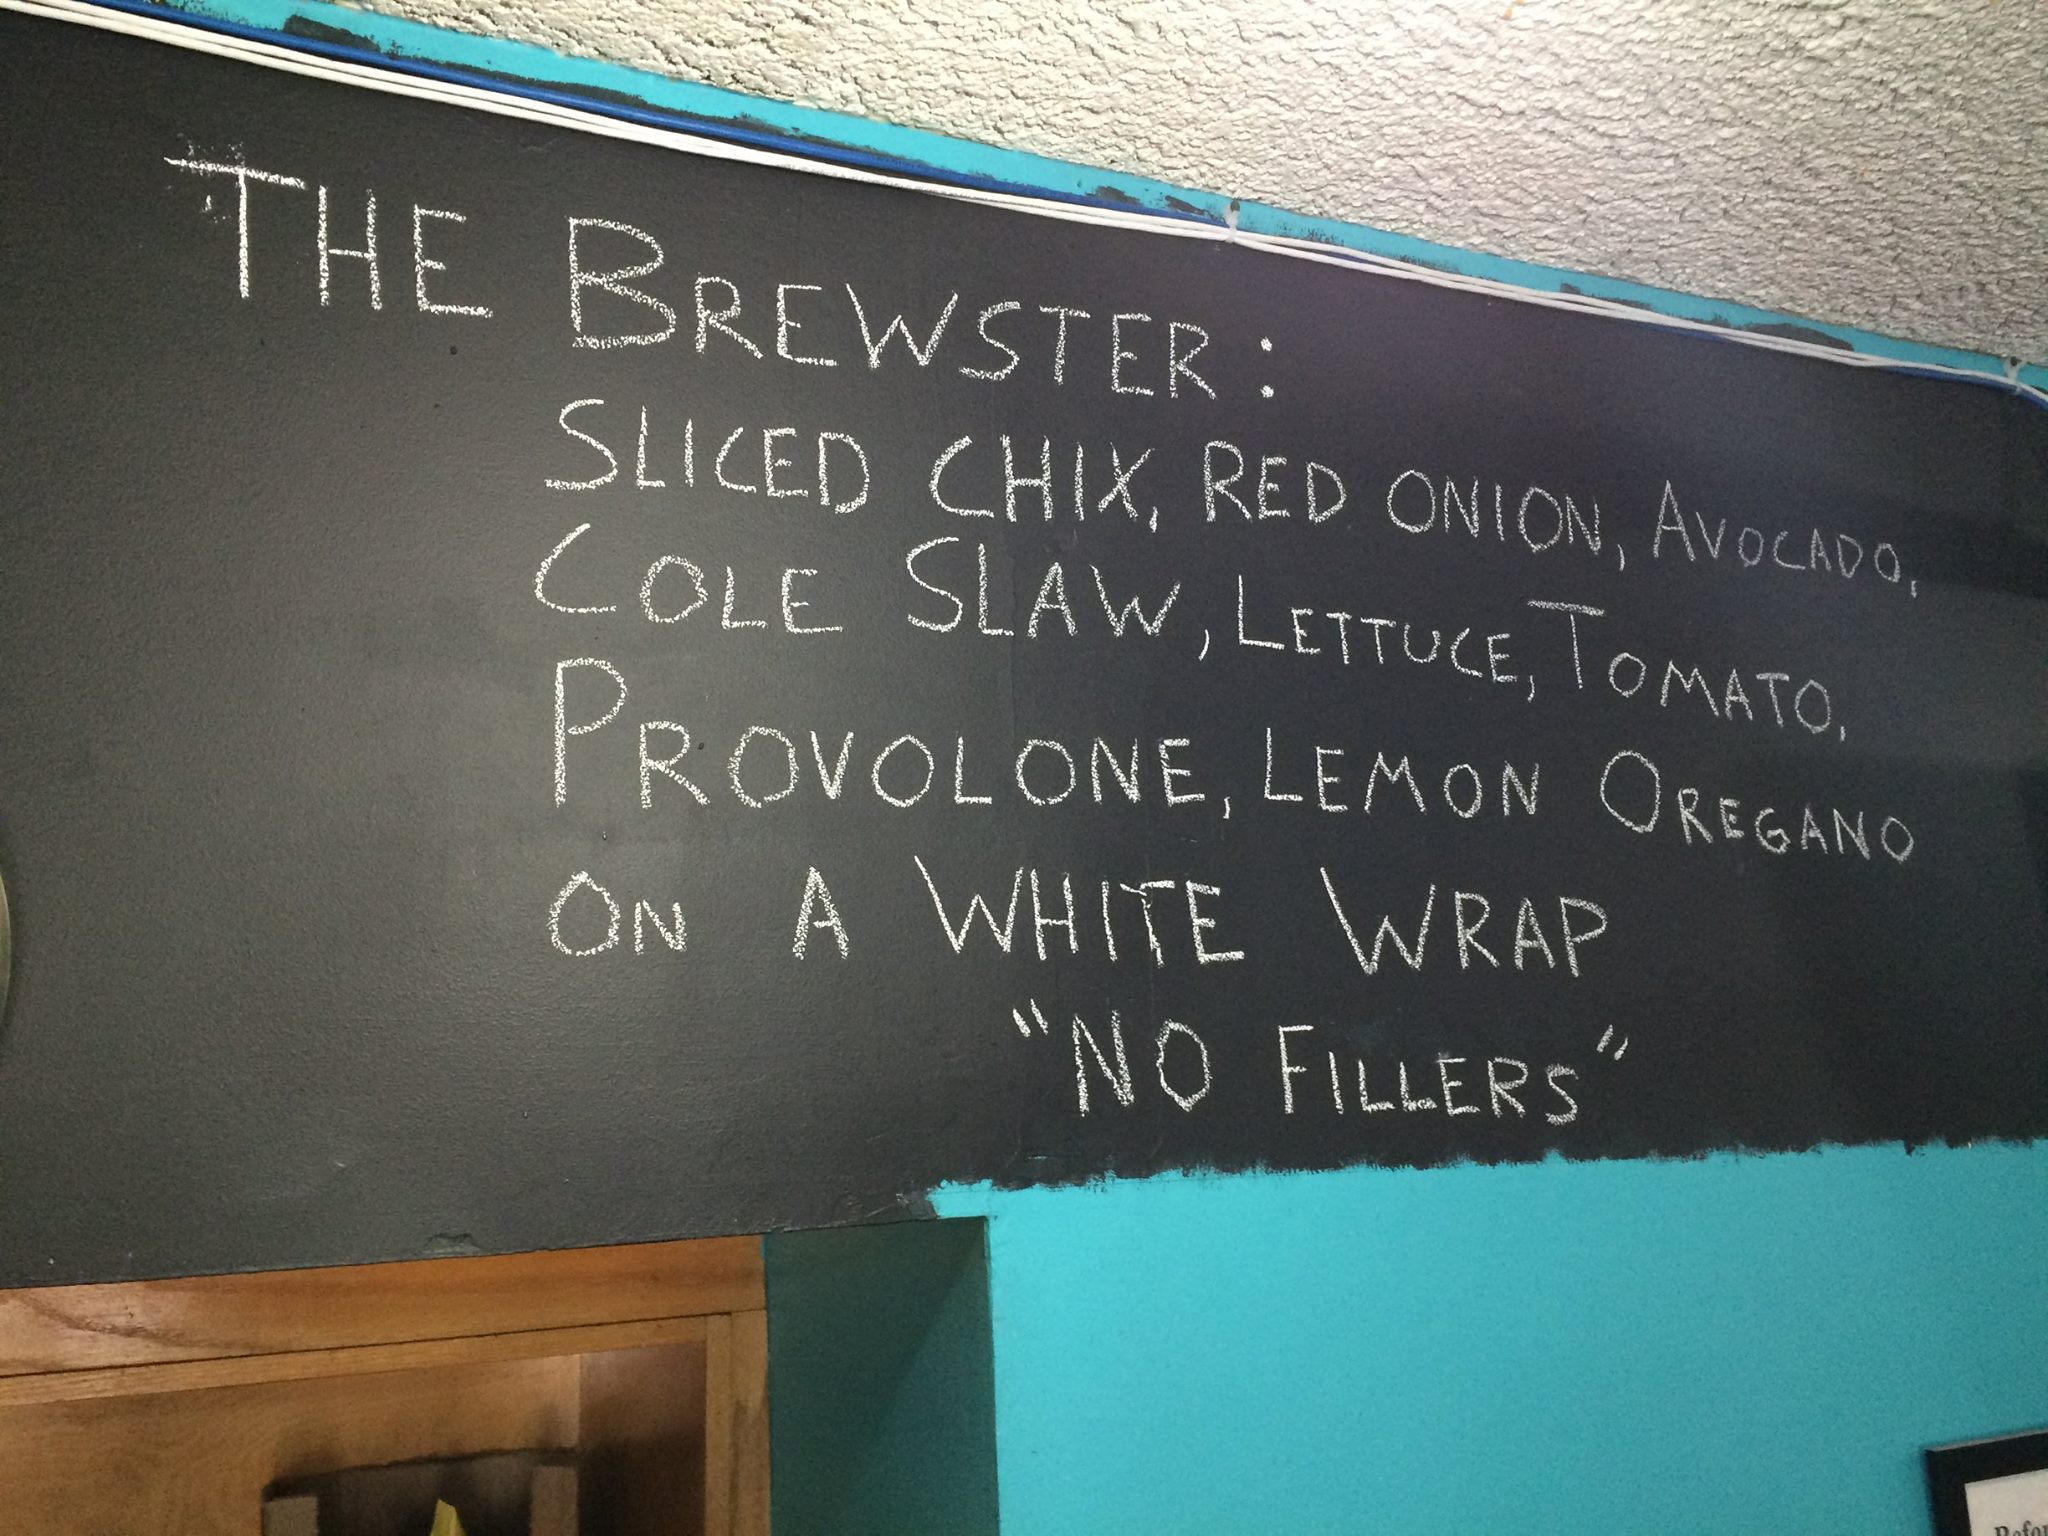 THE BREWSTER:
SLICED CHIX, RED ONION, AVOCADO,
COLE SLAW, LETTUCE, TOMATO,
PROVOLONE, LEMON OREGANO
ON A WHITE WRAP
"NO FILLERS"